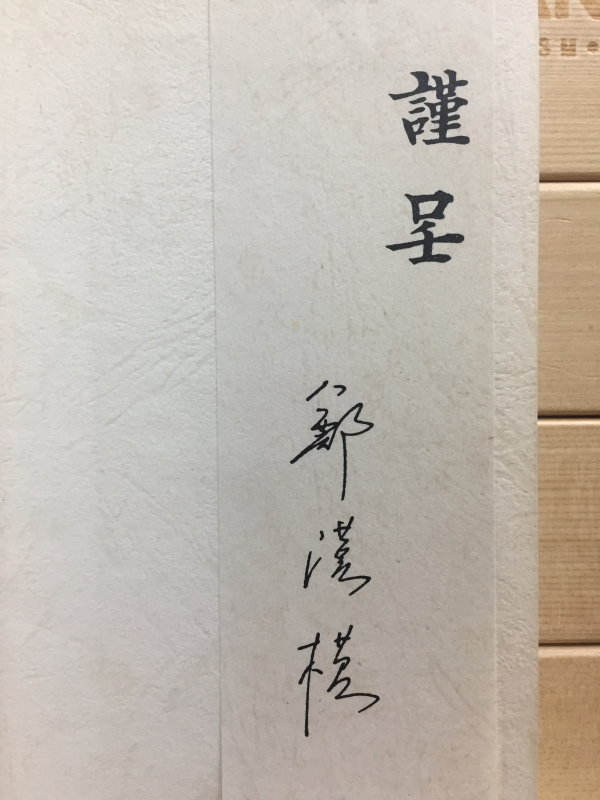 謹呈
鄭漢模